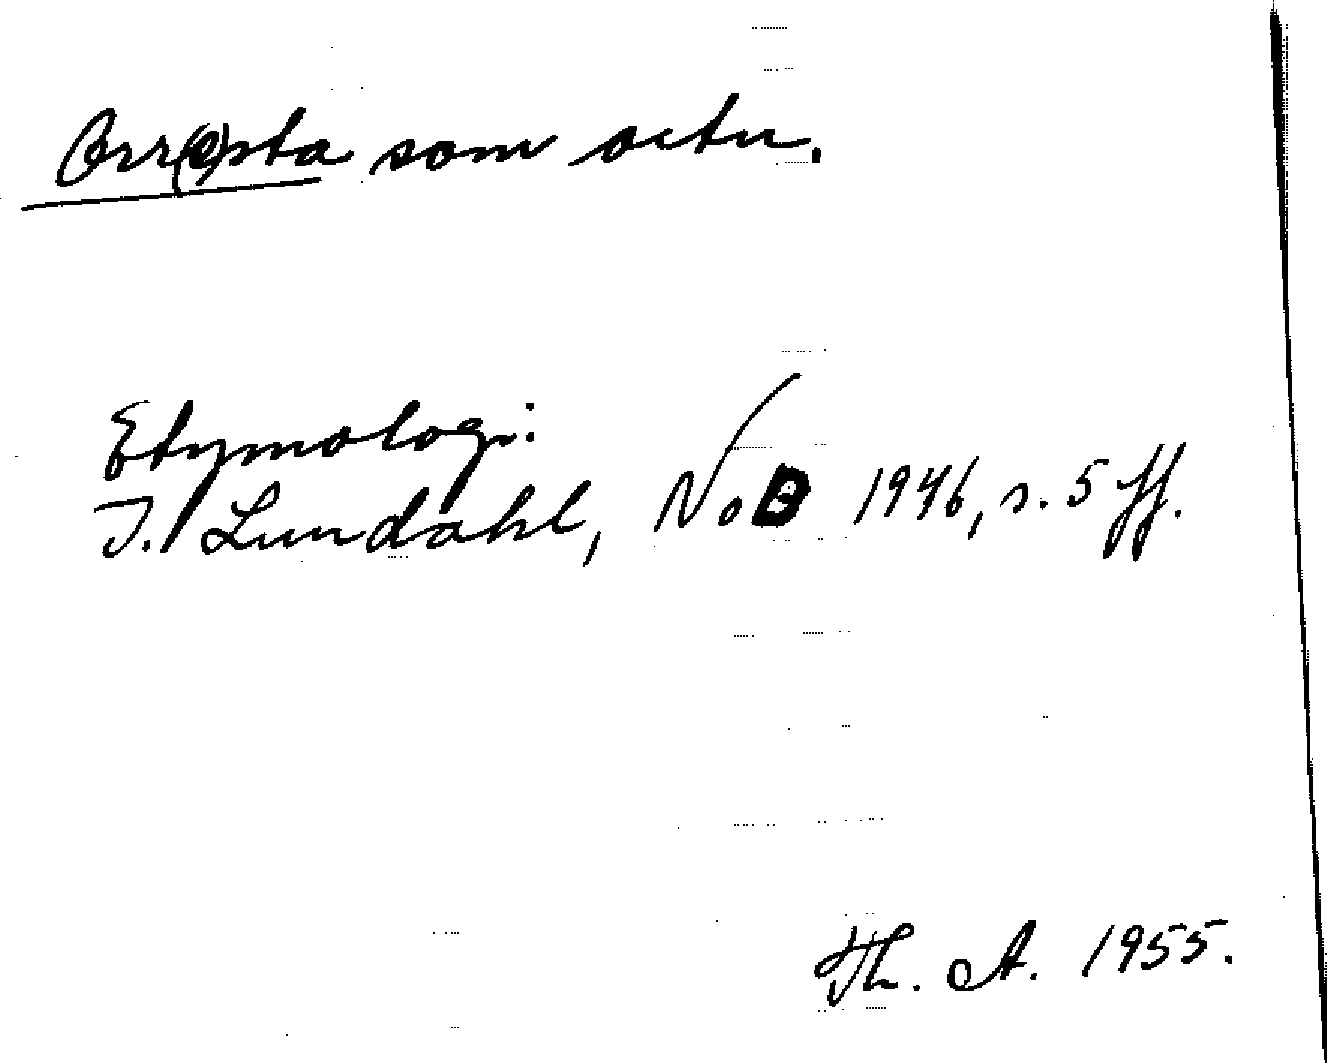 Orr(e)sta som ortn.
Etymologi:
I. Lundahl, NoB 1946, s. 5 ff.
Th. A. 1955.